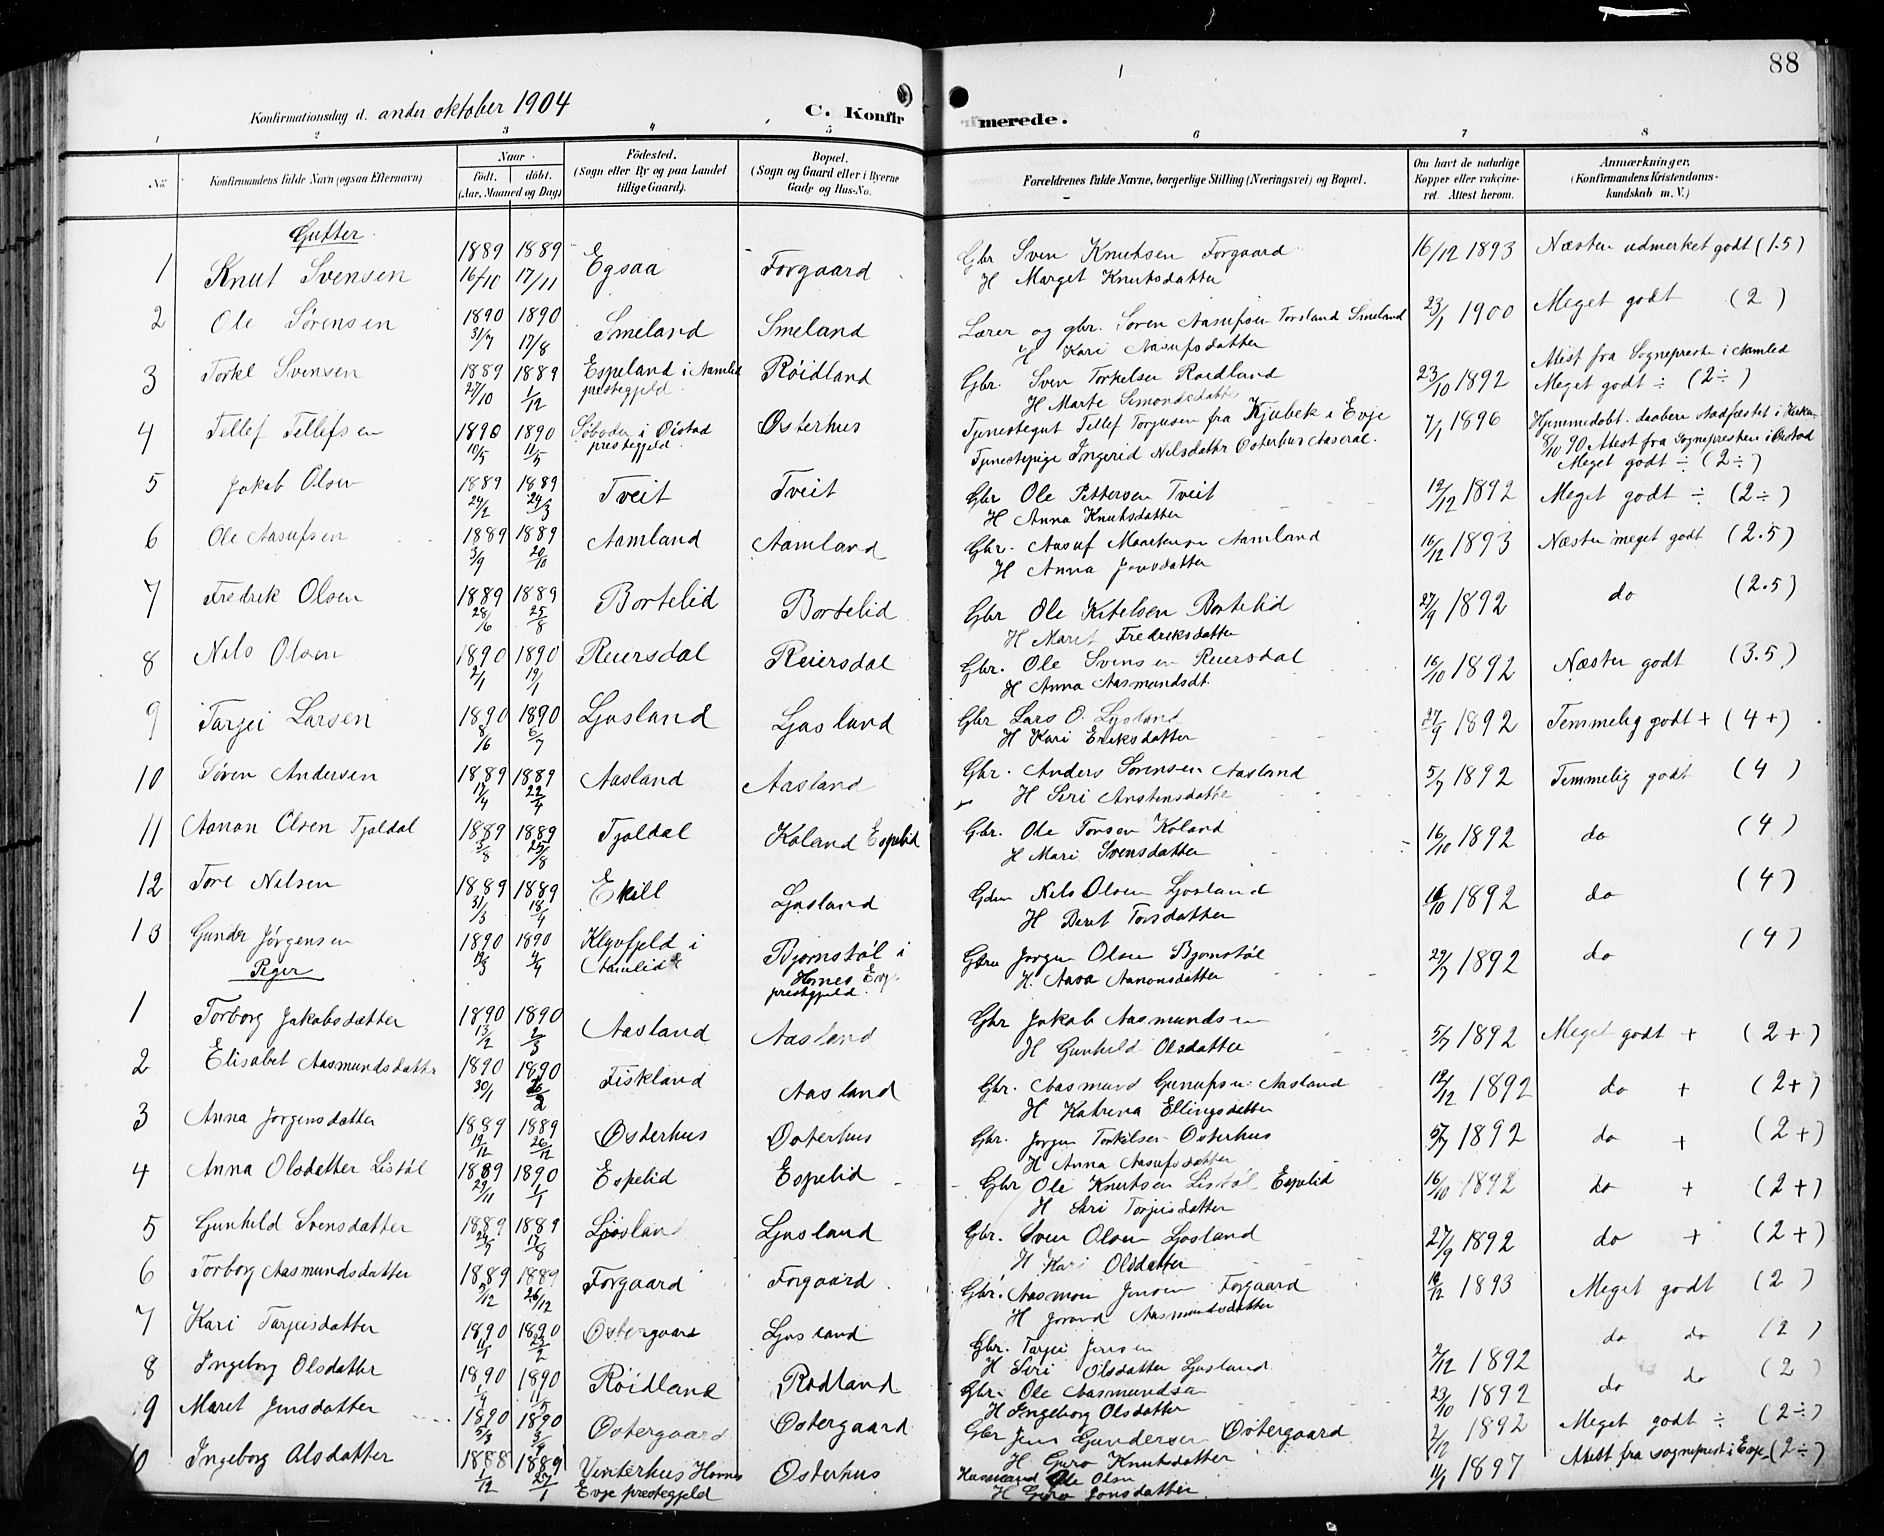 88
Konfirmationsdag d. anden oktober 1904
C. Konfirmerede.
1 2 3 4 5 6 7 8
No. Konfirmandens fulde Navn (ogsaa Efternavn) Naar født. døbt. (Aar, Maaned og Dag) Fødested. (Sogn eller By og paa Landet tillige Gaard). Bopæl. (Sogn og Gaard eller i Byerne Gade og Hus-No. Forældrenes fulde Navne, borgerlige Stilling (Næringsvei) og Bopæl. Om havt de naturlige Kopper eller vakcineret. Attest herom. Anmærkninger. (Konfirmandens Kristendomskundskab m. V.)
Gutter
1 Knut Svensen 1889 16/10 1889 17/11 Egsaa Forgaard Gbr Sven Knutsen Forgaard 16/12 1893 Næsten udmerket godt (1.5)
H Marget Knutsdatter
2 Ole Sørensen 1890 31/7 1890 17/8 Smeland Smeland Lærer og gbr. Søren Aasufsen Torsland Smeland 23/1 1900 Meget godt (2)
H Kari Aasufsdatter
3 Torkel Svensen 1889 27/10 1889 1/12 Espeland i Aamlid prestegjeld Røidland Gbr. Sven Torkelsen Røidland 23/10 1892 Attest fra Sognepresten i Aamlid Meget godt ÷ (2÷)
H Marte Simondsdatter
4 Tellef Tellefsen 1890 10/5 1890 11/5 i Øistad prestegjeld. Osterhus Tjenestegut Tellef Torjusen fra Kjubek i Evje 7/1 1896 Hjemmedøbt. daaben stadfæstet i Kirken 8/10 90 Attest fra Sognepresten i Øistad Meget godt ÷ (2÷)
Tjenestepige Ingerid Nilsdattr Osterhus Aaseral.
5 Jakob Olsen 1889 24/2 1889 24/3 Tveit Tveit Gbr Ole Pettersen Tveit 12/12 1892 Meget godt ÷ (2÷)
H Anna Knutsdatter
6 Ole Aasufsen 1889 3/9 1889 20/10 Aamland Aamland Gbr. Aasuf Aamland 16/12 1893 Næsten meget godt (2.5)
H Anna Jensdatter
7 Fredrik Olsen 1889 28/6 1889 25/8 Bortelid Bortelid Gbr Ole Kitelsen Bortelid 27/9 1892 do (2.5)
H Maret Fredriksdatter
8 Nils Olsen 1890 2/1 1890 19/1 Reiersdal Reiersdal Gbr. Ole Svensen Reiersdal 16/10 1892 Næsten godt (3.5)
H Anna Aasmundsdt.
9 Tarjei Larsen 1890 8/6 1890 6/7 Ljosland Ljosland Gbr Lars O. Ljosland 27/9 1892 Temmelig godt + (4+)
H Kari Eriksdatter
10 Søren Andersen 1889 17/4 1889 22/4 Aasland Aasland Gbr. Anders Sørensen Aasland 5/7 1892 Temmelig godt (4)
H Seri Anstensdatter
11 Aanon Olsen Tjaldal 1889 3/8 1889 25/8 Tjaldal Køland Espelid Gbr. Ole Tonsen Køland 16/10 1892 do (4)
H Mari Svensdatter
12 Tore Nilsen 1889 31/3 1889 18/4 Ekill Ljosland Gdm Nils Olsen Ljosland 16/10 1892 do (4)
H Beret Torsdatter
13 Gunder Jørgensen 1890 12/3 1890 4/4 Klevfjeld i Aamlid Bjørnstøl i Hornes Evje prestegjeld. Gbr Jørgen Olsen Bjørnstøl 29/7 1892 do (4)
H. Aasa Aanonsdatter
Piger
1 Torborg Jakobsdatter 1890 13/2 1890 2/3 Aasland Aasland Gbr Jakob Aasmundsen 5/7 1892 Meget godt + (2+)
H Gunhild Olsdatter
2 Elisabet Aasmundsdatter 1890 30/1 1890 16/2 Fiskland Aasland Gbr. Aasmund Gunufsen Aasland 12/12 1892 do + (2+)
H Katrina Ellingsdatter
3 Anna Jørgensdatter 1889 19/12 1889 26/12 Østerhus Osterhus Gbr. Jørgen Torkilsen Osterhus 5/7 1892 do + (2+)
H Anna Aasufsdatter
4 Anna Olsdatter Listøl 1889 29/11 1890 1/1 Espelid Espelid Gbr Ole Knutsen Listøl Espelid 16/10 1892 do + (2+)
H Siri Torjusdatter
5 Gunhild Svensdatter 1889 24/5 1889 17/8 Ljosland Ljosland Gbr. Sven Olsen Ljosland 27/9 1892 do + (2+)
H Kari Olsdatter
6 Torborg Aasmundsdatter 1889 5/12 1889 26/12 Forgaard Forgaard Gbr. Aasmon Jensen Forgaard 16/12 1893 Meget godt (2)
H Jorand Aasmundsdatter
7 Kari Tarjeisdatter 1890 11/1 1890 23/2 Ostergaard Ljosland Gbr. Tarjei Jensen 2/12 1892 do do (2)
H Seri Olsdatter Ljosland
8 Ingeborg Olsdatter 1890 1/4 1890 11/5 Røidland Rødland Gbr. Ole Aasmundsen 23/10 1892 do do (2)
H Ingeborg Olsdatter
9 Maret Jensdatter 1890 5/3 1890 3/4 Ostergaard Ostergaard Gbr Jens Gundersen Østergaard 2/12 1892 Meget godt ÷ (2÷)
H Guro Knutsdatter
10 Ingeborg Olsdatter 1888 1/12 1889 27/1 Vinterhus Hornes Evje prestegjeld Osterhus Husmand Ole Olsen 11/1 1897 Attest fra sogneprest i Evje (2÷)
H Guro Jonsdatter